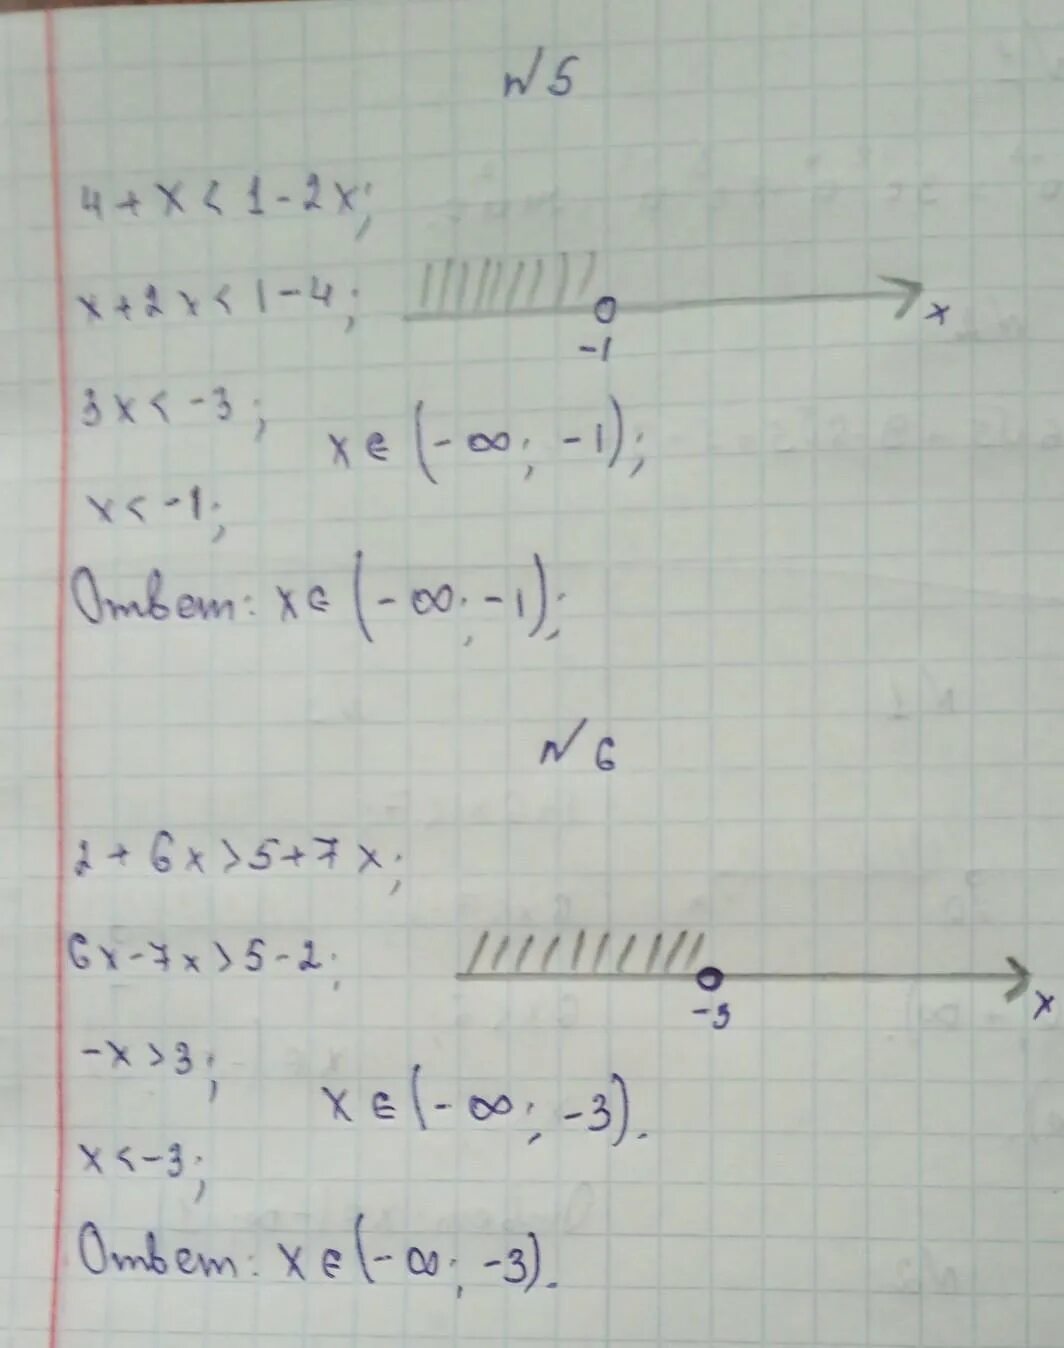 № 5
4 + x < 1 - 2x;
x + 2x < 1 - 4;
-1
x
3x < -3;
x ∈ (-∞; -1);
x < -1;
Ответ: x ∈ (-∞; -1);
№ 6
2 + 6x > 5 + 7x;
6x - 7x > 5 - 2;
-3
x
-x > 3;
x ∈ (-∞; -3).
x < -3;
Ответ: x ∈ (-∞; -3).